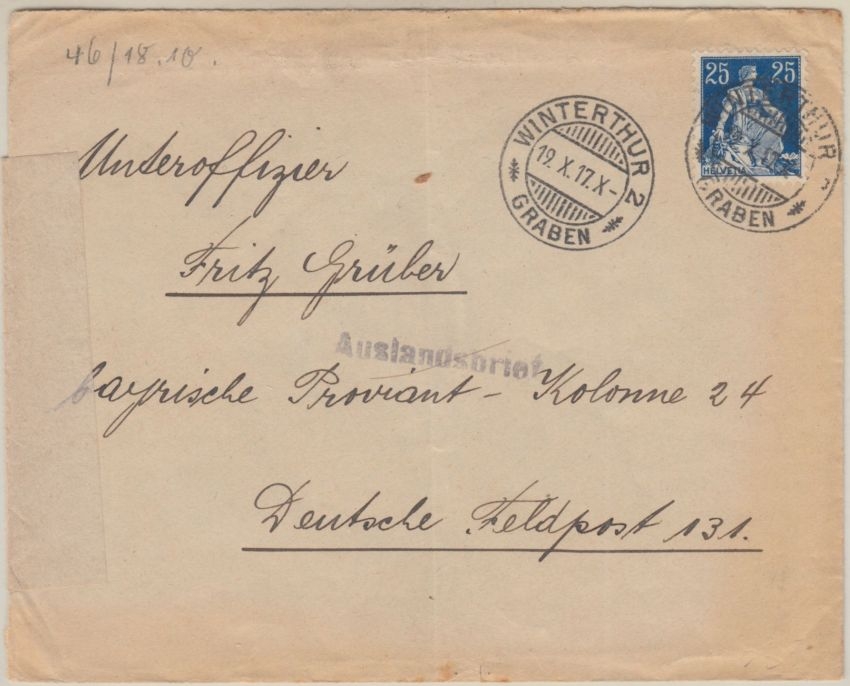 46/18.10.
25 25
HELVETIA
WINTERTHUR 2
19.X.17.X-
GRABEN
WINTERTHUR 2
GRABEN
Unteroffizier
Fritz Grüber
Auslandsbrief
bayrische Proviant - Kolonne 24
Deutsche Feldpost 131.